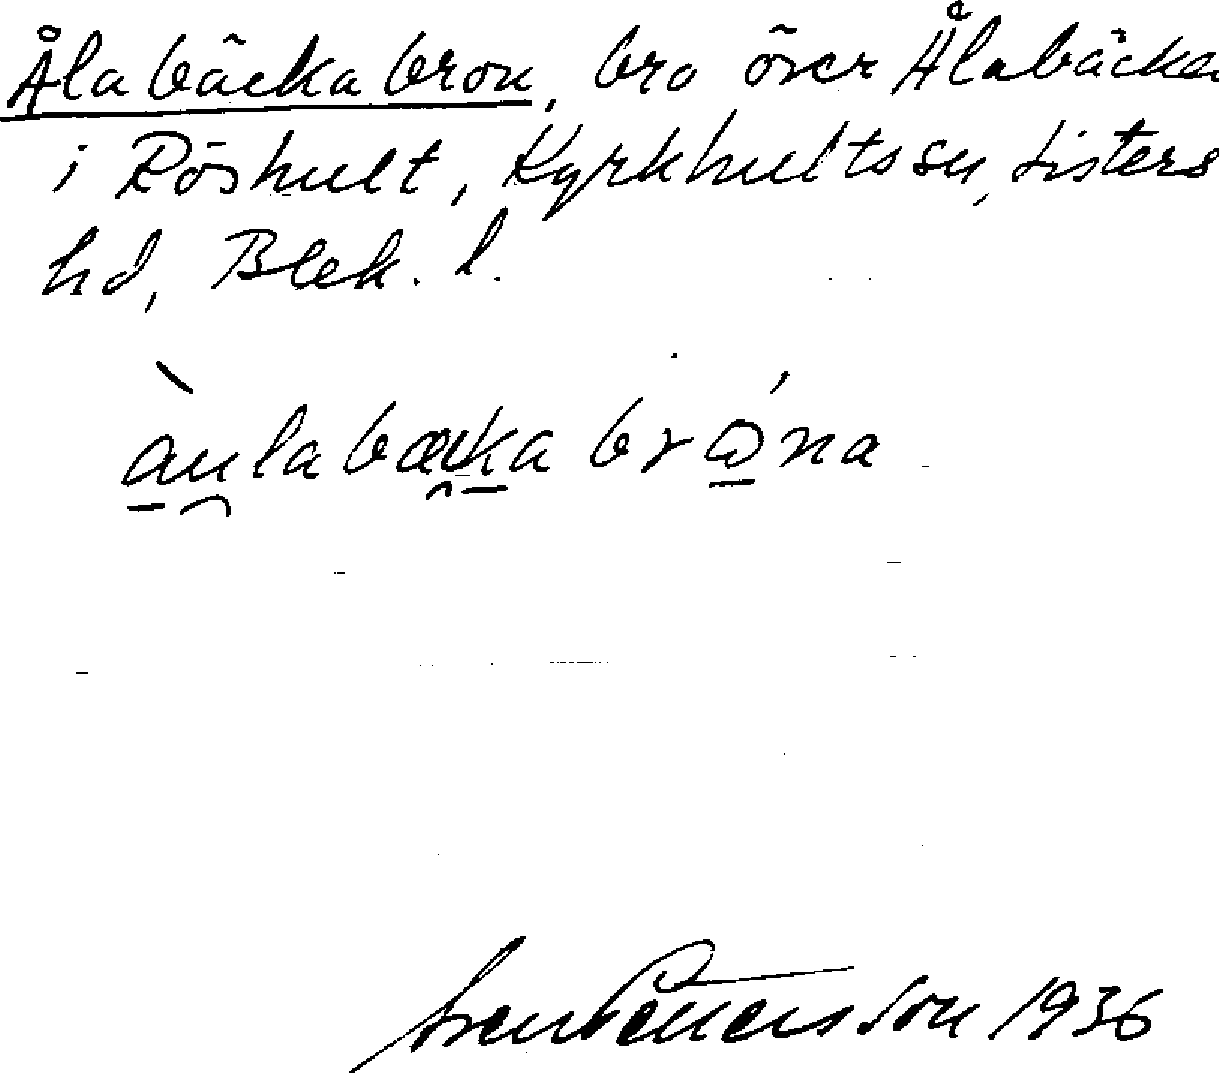 Ålabäckabron, bro över Ålabäcken
i Röshult, Kyrkhults sn, Listers
hd, Blek. l.
àulabækabrǿna
Sven Pettersson 1936